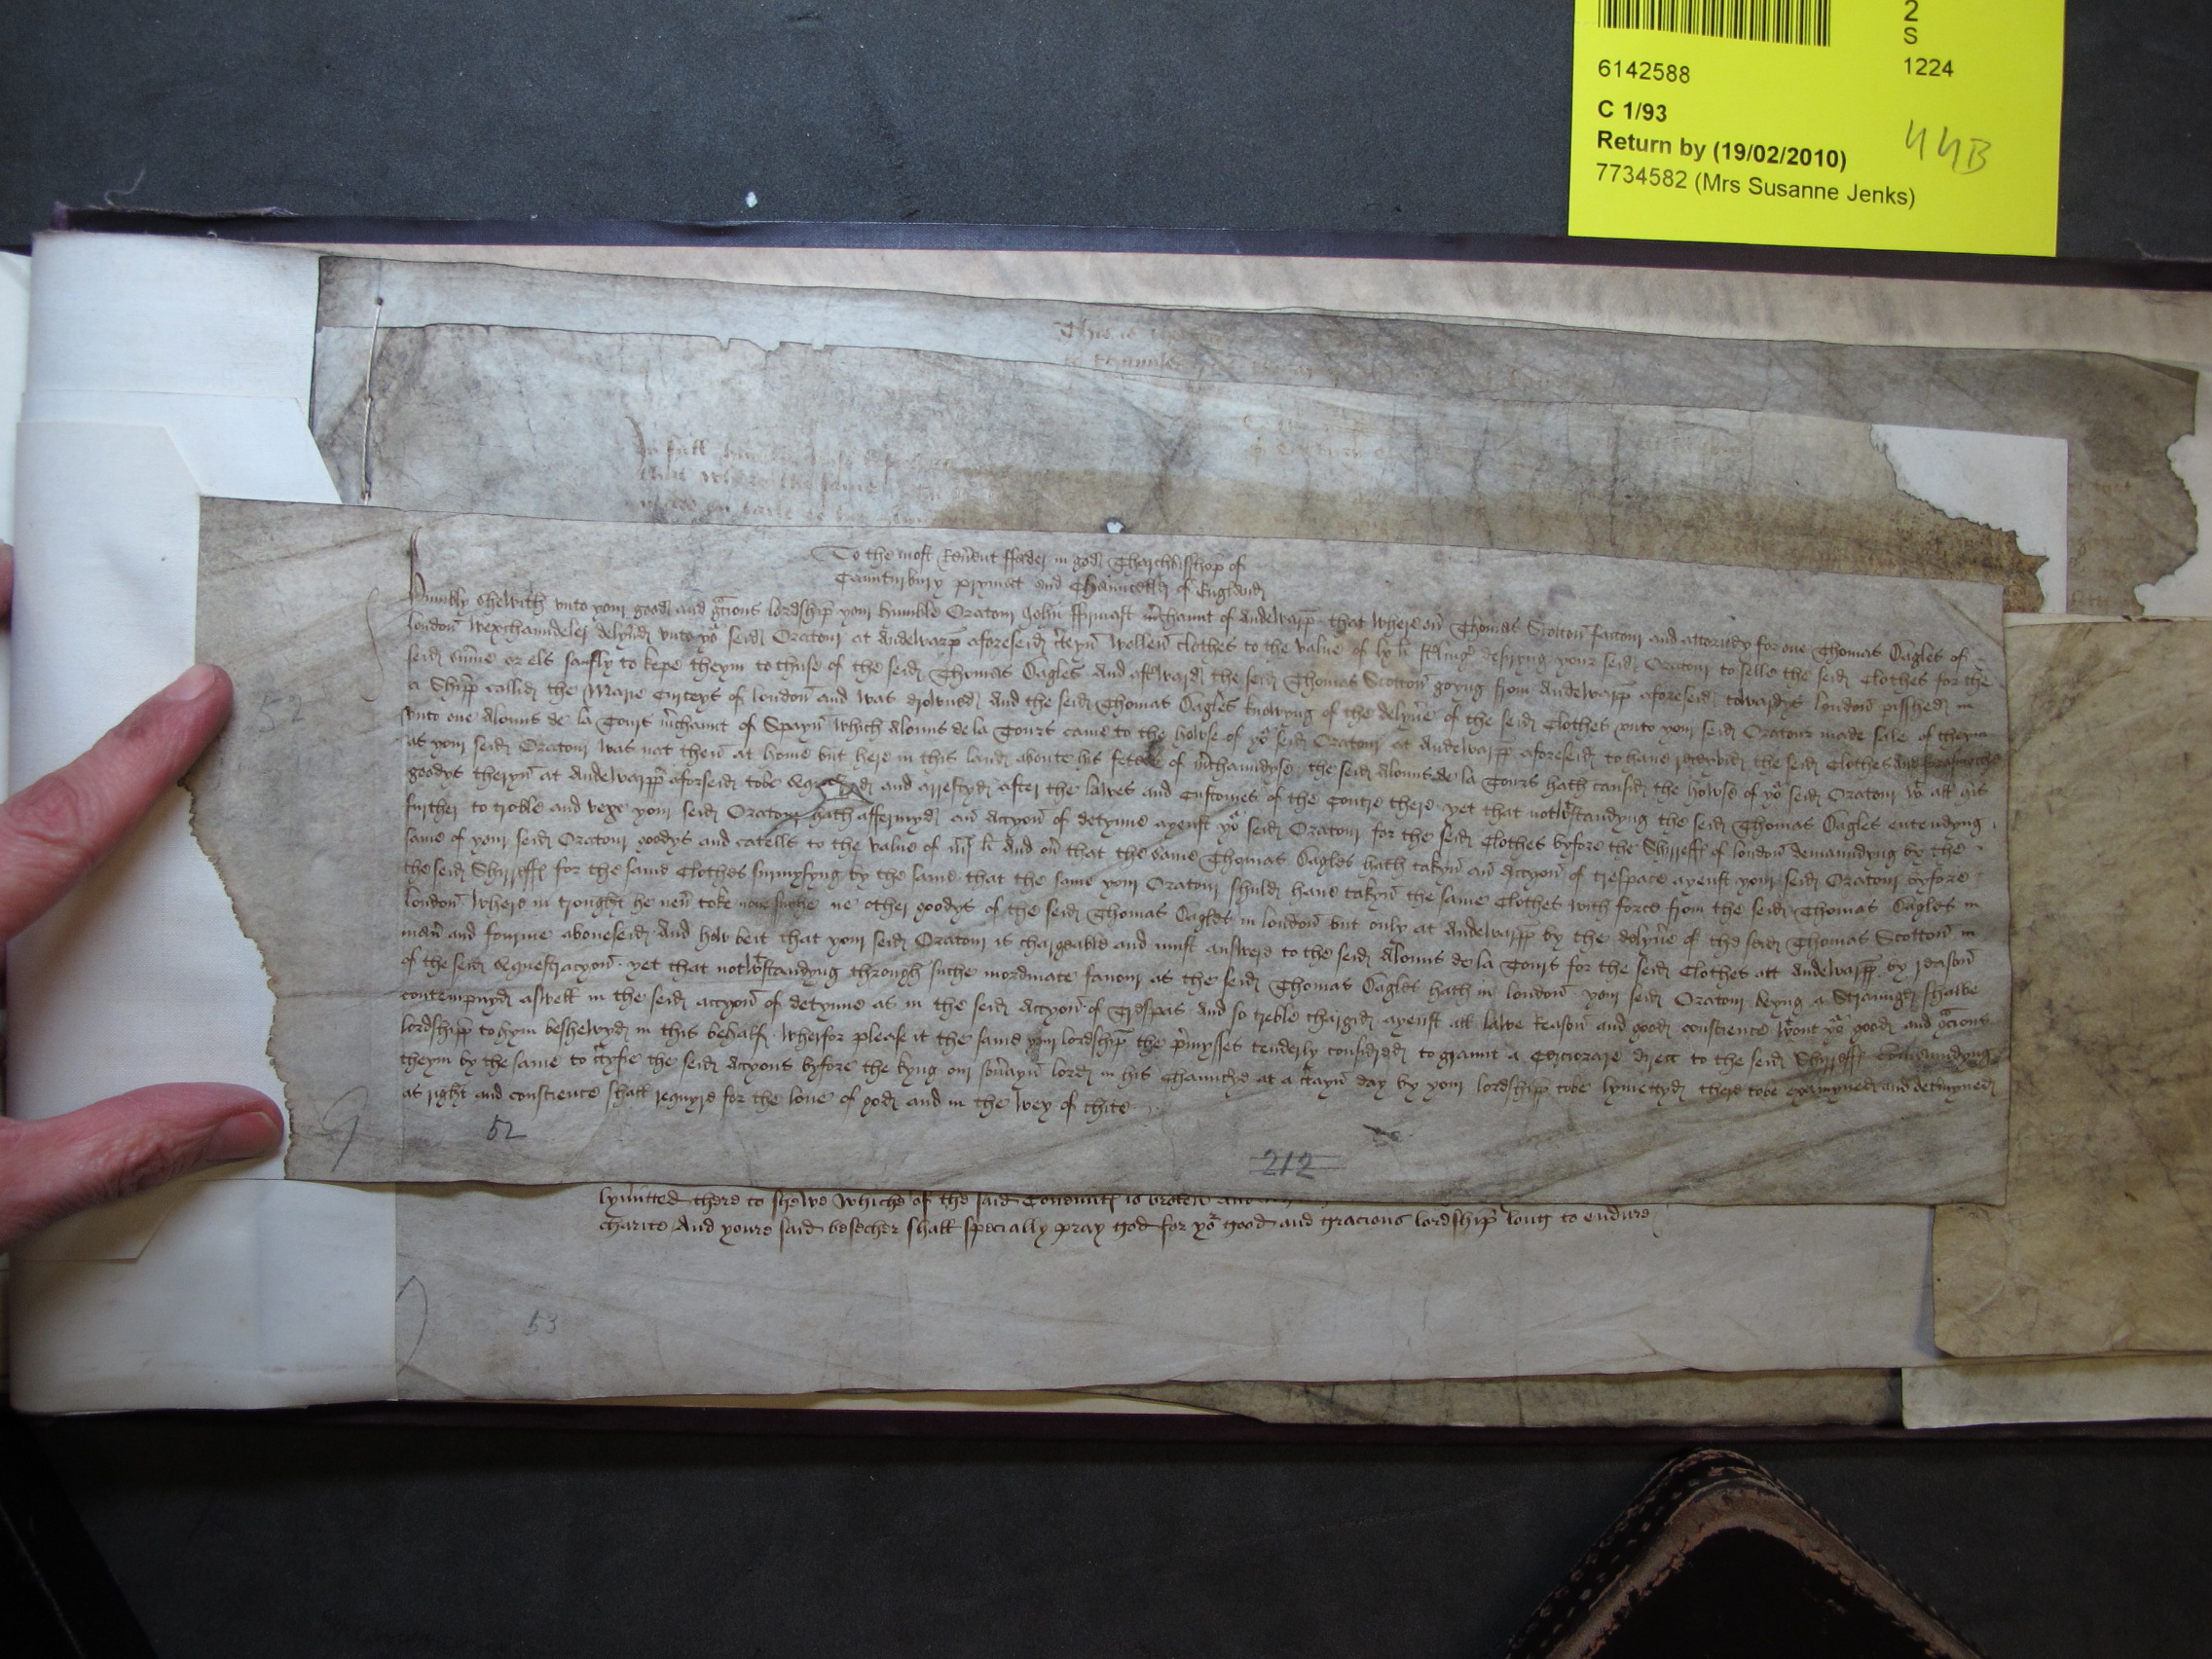 2
S
6142588 1224
C 1/93
Return by (19/02/2010) 44B
7734582 (Mrs Susanne Jenks)
This is
In full
that where the same
To the most Reu'ent ffader in god Tharchebisshop of
Caunturbury prymat and Chaunceller of England
Humbly shewith vnto your good and gracious lordship your humble Oratour John ffirmast m'chaunt of Andewarp that where on Thomas Scotton factour and attorney for one Thomas Dagles of
london wexchaundeler delyu'd vnto yor seid Oratour at Andewarp aforeseid c'teyn wollen clothes to the value of lx li st'ling desiryng your seid Oratour to selle the seid Clothes for the
seid su'me or els saufly to kepe theym to thuse of the seid Thomas Dagles And aft'ward the seid Thomas Scotton goyng from Andewarp aforeseid towardys london pisshed in
a Shipp callid the Marie Curteys of london and was drownd And the seid Thomas Dagles knowyng of the delyu'e of the seid Clothes vnto your seid Oratour made sale of theym
vnto one Alouns de la Tours m'chaunt of Spayn which Alouns de la Tours came to the howse of yor seid Oratour at Andewarpp aforeseid to haue receyuid the seid Clothes And forasmoche
as your seid Oratour was nat then at home but here in this land aboute his of m'chaundyse the seid Alouns de la Tours hath causid the howse of yor seid Oratour wt all his
goodys theryn at Andewarpp aforseid tobe and arrestyd after the lawes and Custumes of the Contre there yet that notwtstandyng the seid Thomas Dagles entendyng
further to troble and vexe your seid Oratour hath affermyd an Accyon of detynue ayenst yor seid Oratour for the seid Clothes byfore the Shireff of london demaundyng by the
same of your seid Oratour goodys and catells to the value of iiij li And ou' that the same Thomas Dagles hath takyn an Accyon of trespace ayenst your seid Oratour byfore
the seid Shireff for the same Clothes surmysyng by the same that the same your Oratour shuld haue takyn the same Clothes with force from the seid Thomas Dagles in
london Where in trought he neu' toke none suche ne other goodys of the seid Thomas Dagles in london but only at Andewarpp by the delyu'e of the seid Thomas Scotton in
man' and fourme aboueseid And how beit that your seid Oratour is chargeable and must answere to the seid Alouns de la Tours for the seid Clothes att Andewarpp by reason
of the seid sequestracyon yet that notwtstandyng through suche inordinate fauour as the seid Thomas Dagles hath in london your seid Oratour beyng a Straunger shalbe
contempnyd aswell in the seid accyon of detynue as in the seid Accyon of Trespas And so treble chargid ayenst all lawe Reason and good conscience wtout yor good and gracious
lordshipp to hym beshewyd in this behalf Wherfor please it the same your lordship the p'mysses tenderly considred to graunt a Cerciorare direct to the seid Shireff comaundyng
theym by the same to c'tyfie the seid Accyons byfore the kyng our sou'ayn lord in his Chauncerye at a c'tayn day by your lordshipp tobe lymettyd there tobe examyned and det'myned
as right and conscience shall requyre for the loue of god and in the wey of charite
52
52
212
lymitted there to shewe whiche of the said Couenantes is broken and
charite And youre said besecher shall specially pray god for yor good and gracious lordship long to endure
53